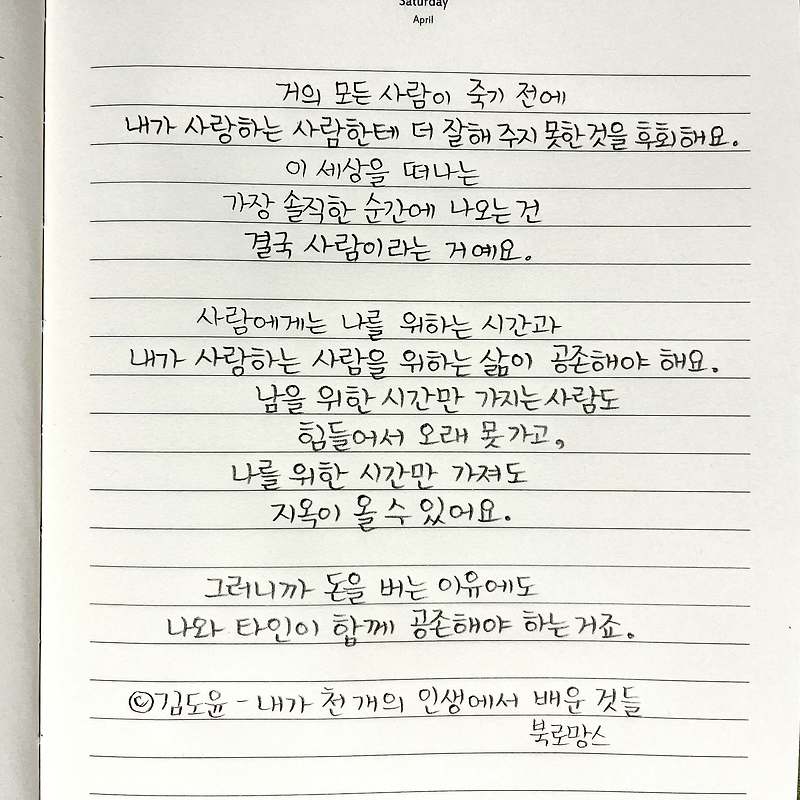 Saturday
April
거의 모든 사람이 죽기 전에
내가 사랑하는 사람한테 더 잘해 주지 못한 것을 후회해요.
이 세상을 떠나는
가장 솔직한 순간에 나오는 건
결국 사람이라는 거예요.
사람에게는 나를 위하는 시간과
내가 사랑하는 사람을 위하는 삶이 공존해야 해요.
남을 위한 시간만 가지는 사람도
힘들어서 오래 못 가고,
나를 위한 시간만 가져도
지옥이 올 수 있어요.
그러니까 돈을 버는 이유에도
나와 타인이 함께 공존해야 하는 거죠.
©김도윤 - 내가 천 개의 인생에서 배운 것들
북로망스